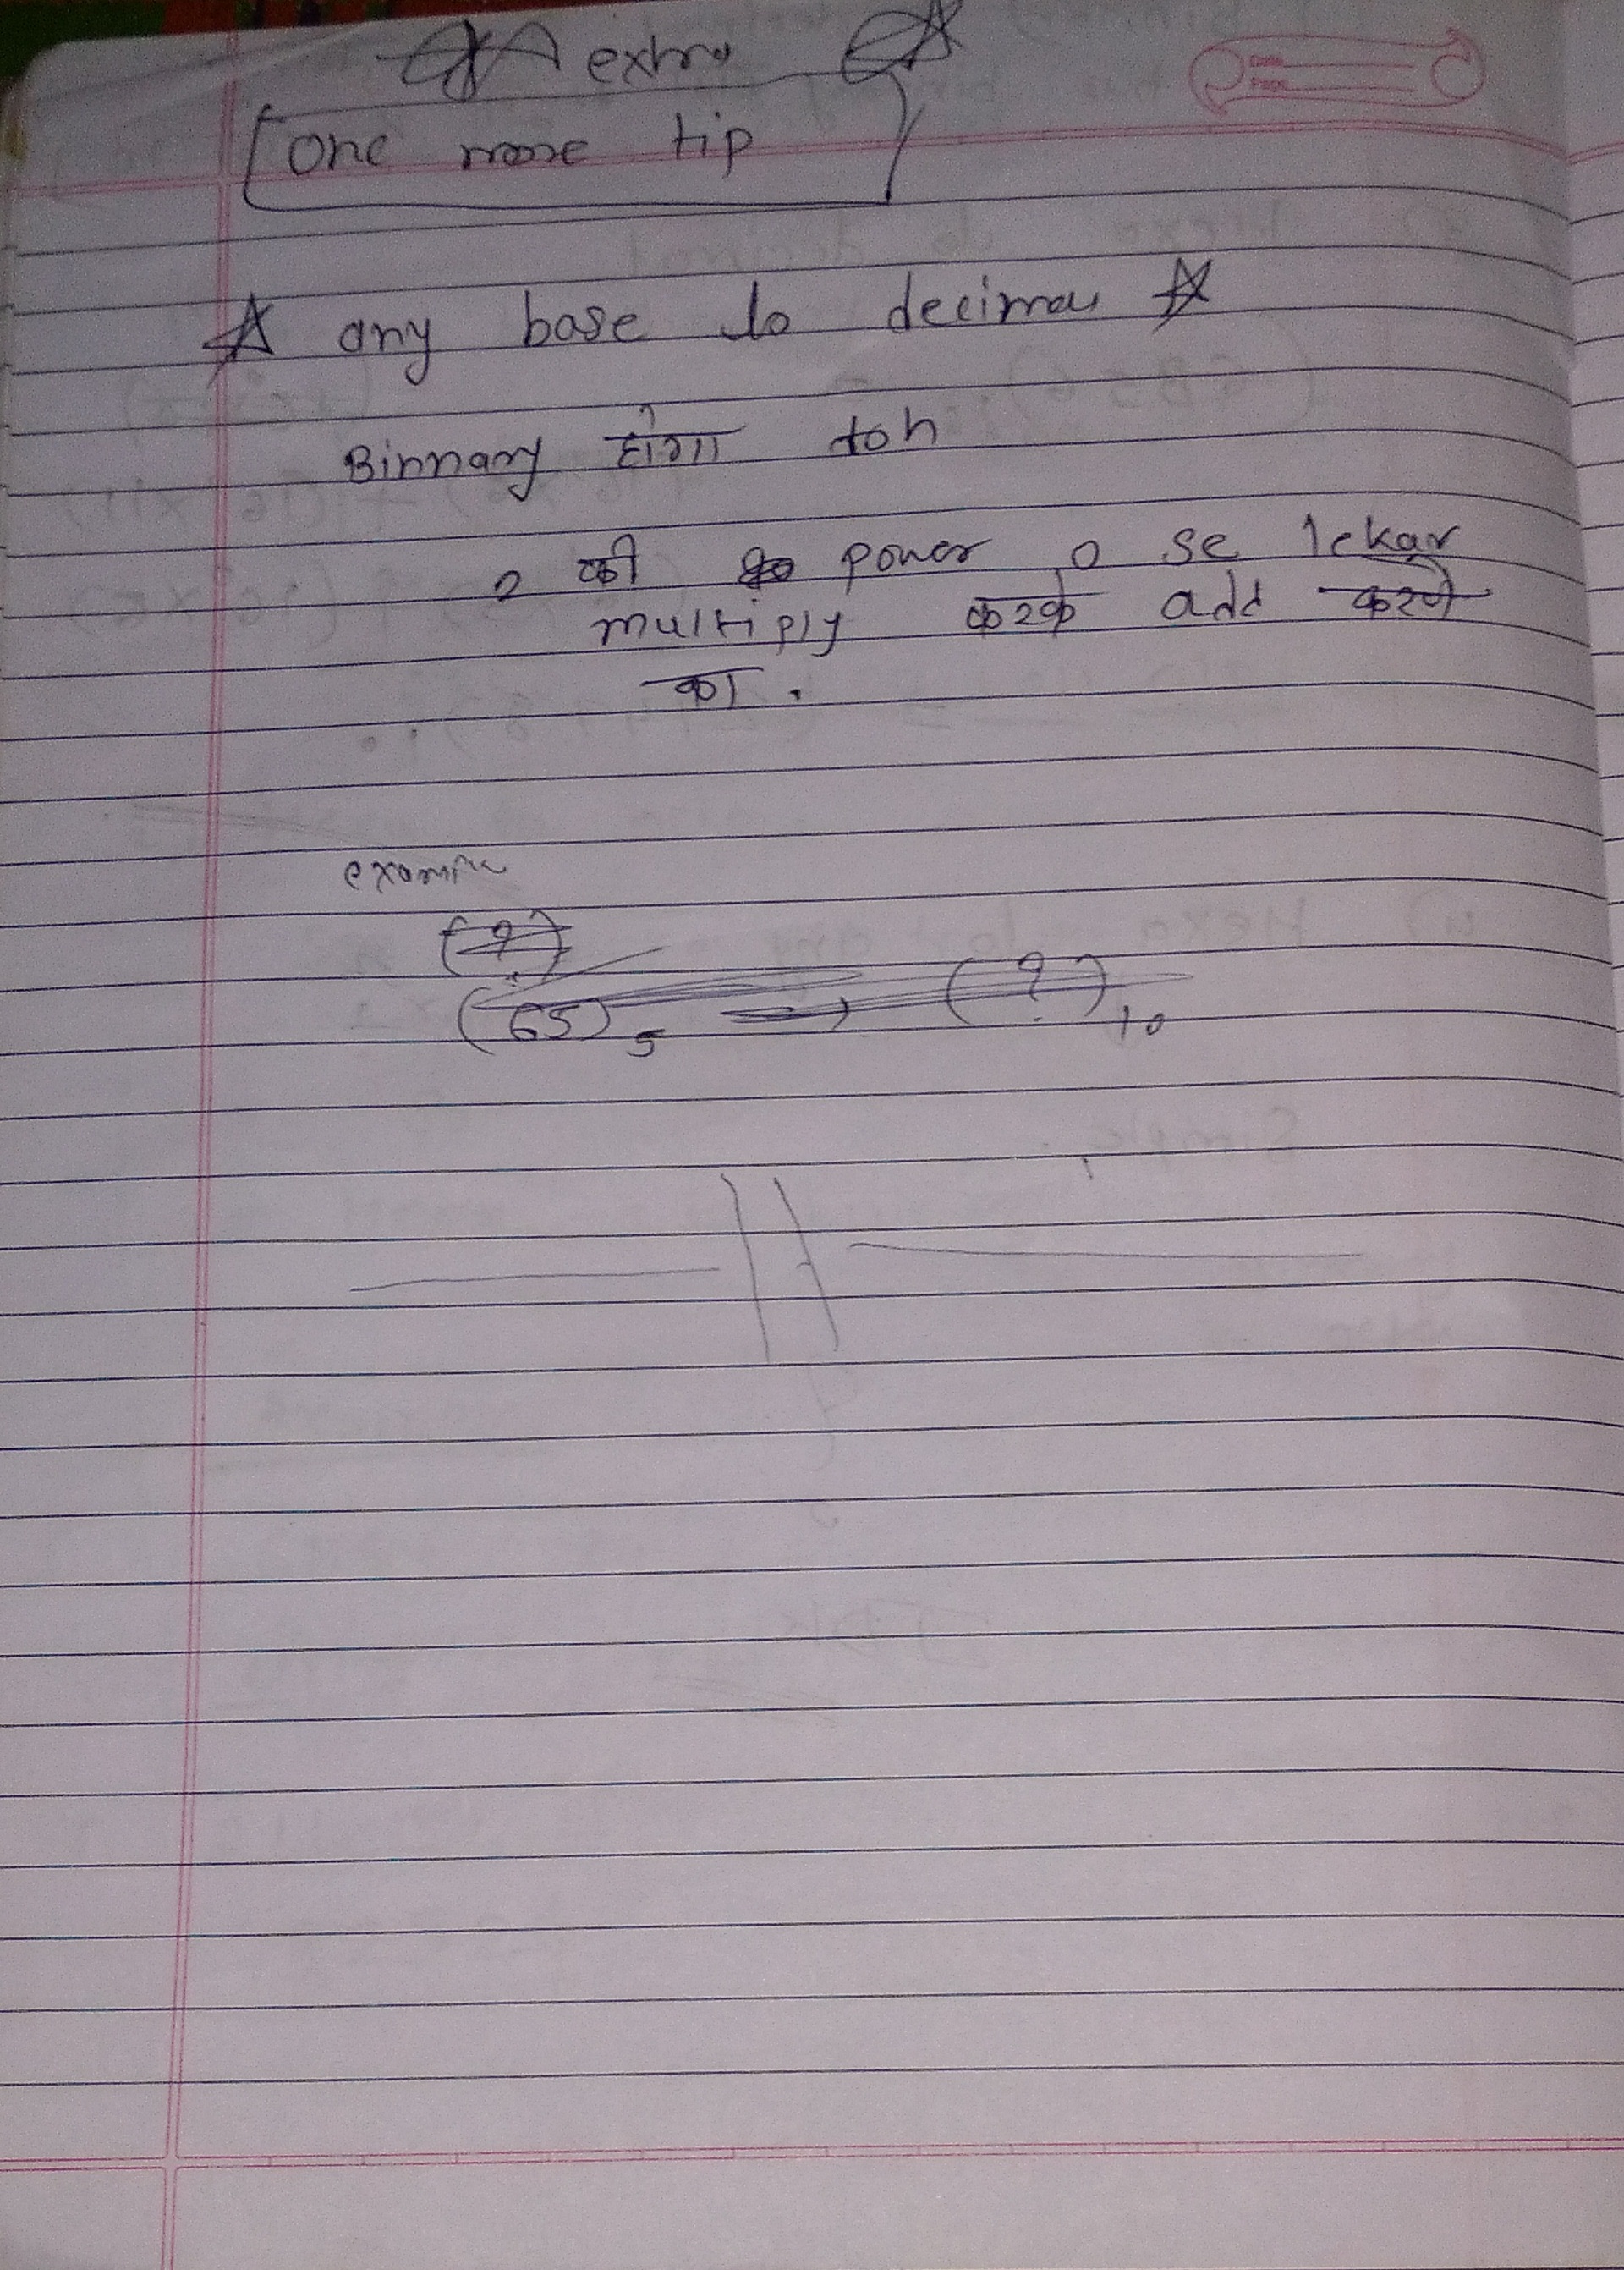 extra
one more tip
any base to decimal
Binnary होगा toh
2 की power 0 se lekar
multiply करके add करने
का.
example
(?)
(65)5 → (?)10